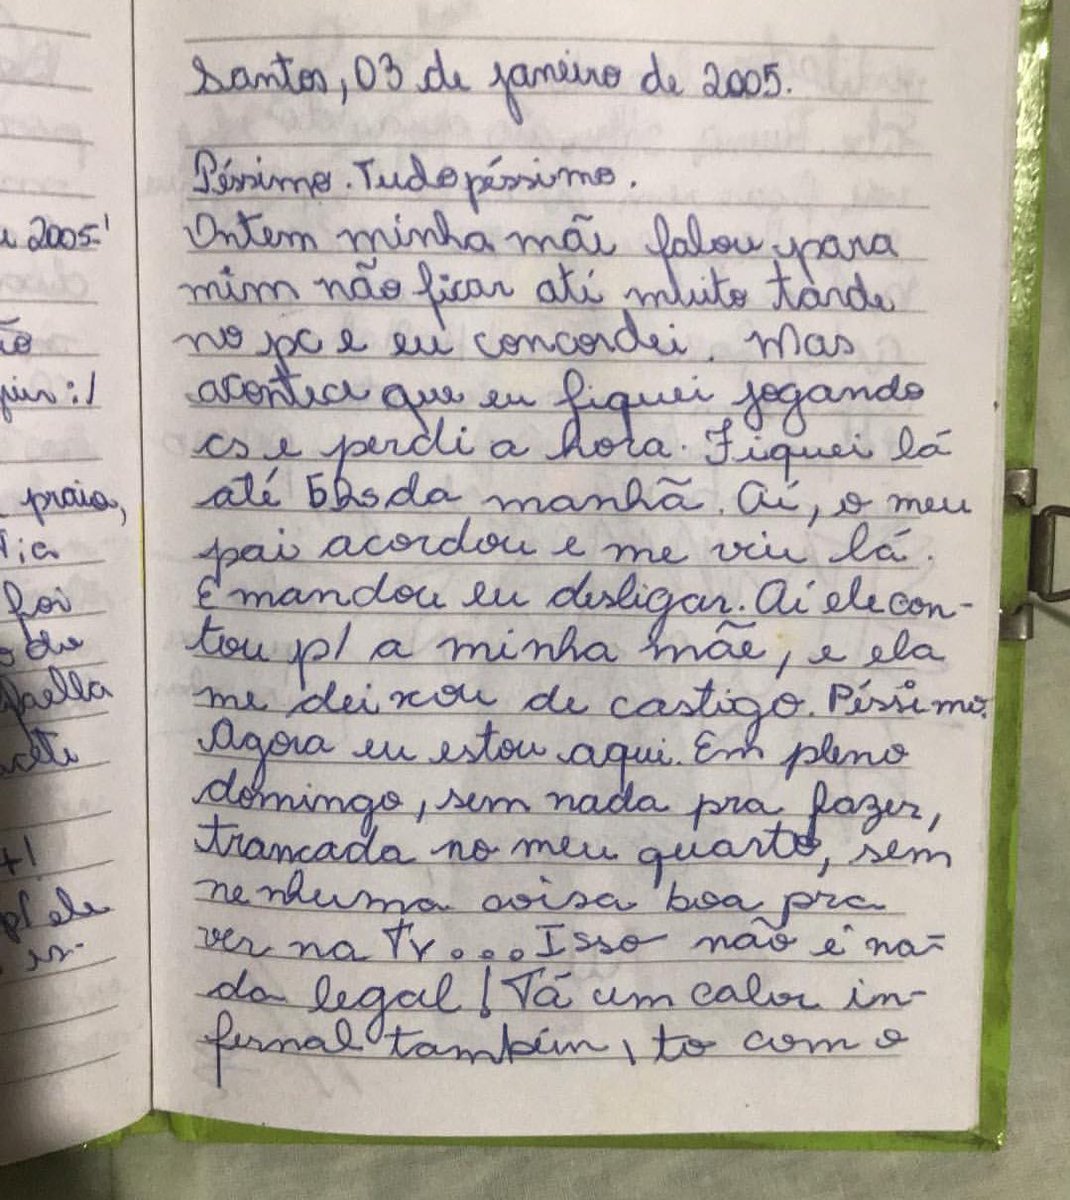 2005.
praia,
foi
p/ ele
Santos, 03 de janeiro de 2005.
Péssimo. Tudo péssimo.
Ontem minha mãe falou para
mim não ficar até muito tarde
no pc e eu concordei. Mas
acontece que eu fiquei jogando
cs e perdi a hora. Fiquei lá
até 5hs da manhã. Aí, o meu
pai acordou e me viu lá.
E mandou eu desligar. Aí ele con-
tou p/ a minha mãe, e ela
me deixou de castigo. Péssimo.
Agora eu estou aqui. Em pleno
domingo, sem nada pra fazer,
trancada no meu quarto, sem
nenhuma coisa boa pra
ver na TV... Isso não é na-
da legal! Tá um calor in-
fernal também, to com o